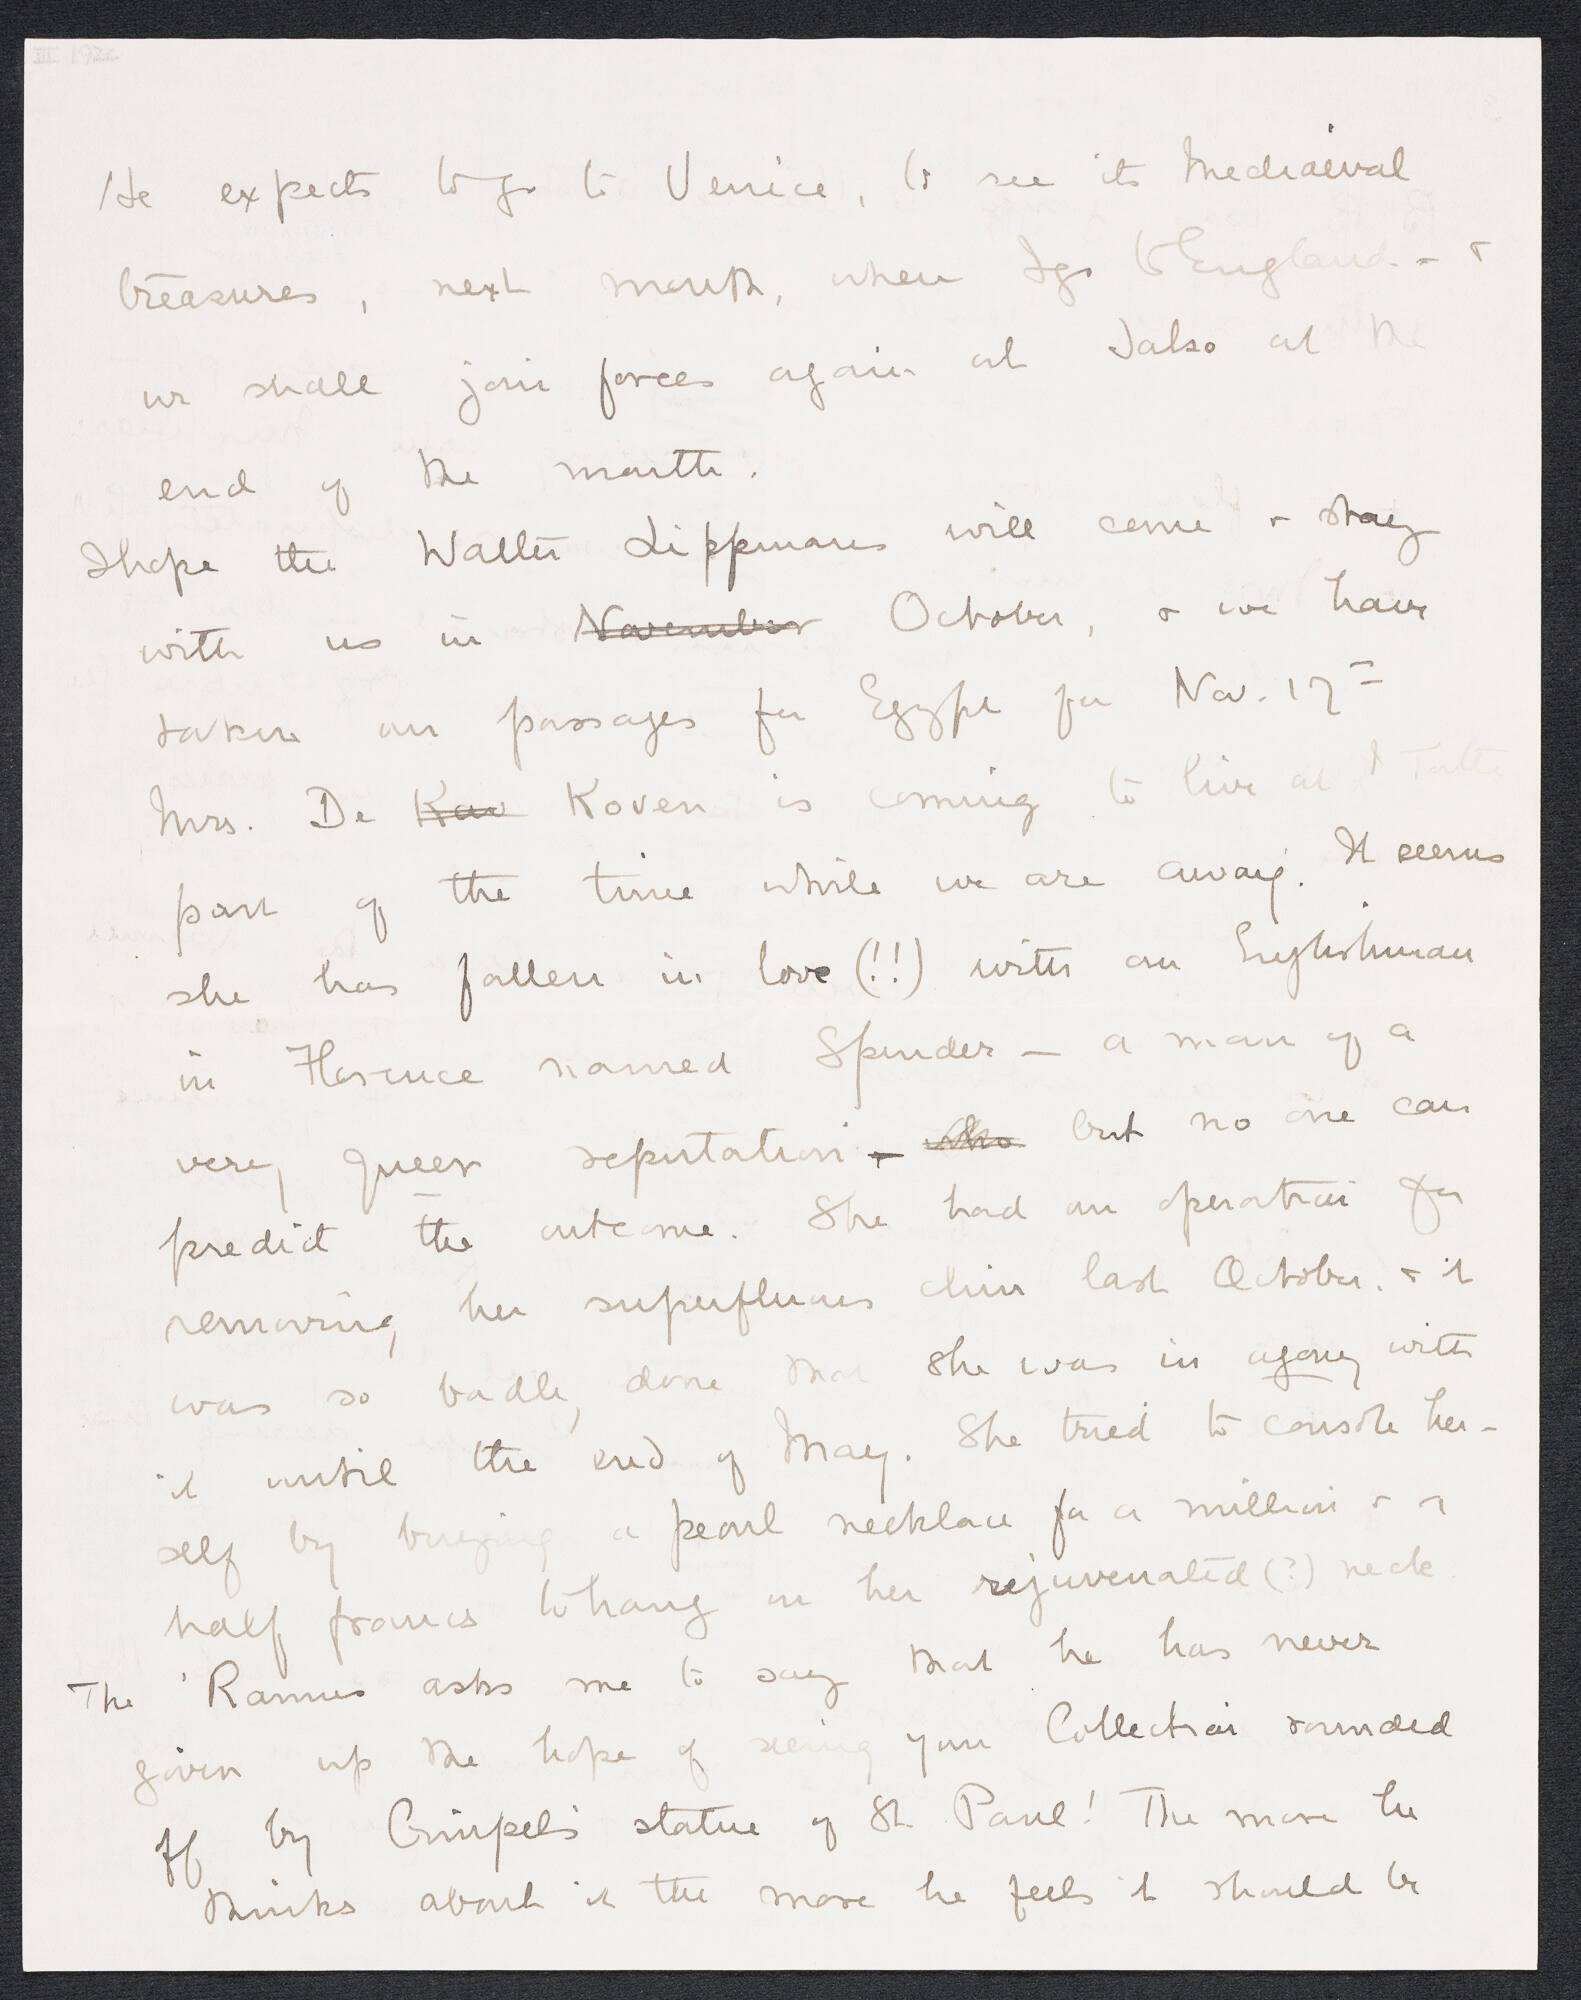 III 192
He expects to go to Venice, to see its Mediaeval
treasures, next month, when I go to England - &
we shall join forces again at Salso at the
end of the month.
I hope the Walter Lippmans will come & stay
with us in November October, & we have
taken our passages for Egypt for Nov. 17
Mrs. De Kov Koven is coming to live at I Tatti
part of the time while we are away. It seems
she has fallen in love (!!) with an Englishman
in Florence named Spender - a man of a
very queer reputation - who but no one can
predict the outcome. She had an operation for
removing her superfluous chin last October. & it
was so badly done that she was in agony with
it until the end of May. She tried to console her-
self by buying a pearl necklace for a million & a
half francs to hang on her rejuvenated (?) neck.
The Rannes asks me to say that he has never
given up the hope of seeing your Collection rounded
off by Gimpel's statue of St. Paul! The more he
thinks about it the more he feels it should be